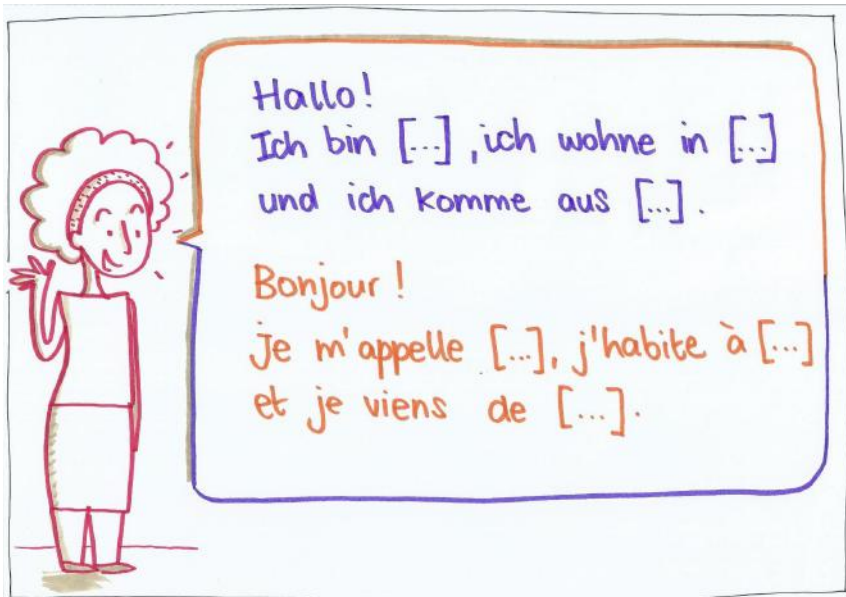 Hallo!
Ich bin [...], ich wohne in [...]
und ich komme aus [...].
Bonjour !
je m'appelle [...], j'habite à [...]
et je viens de [...].